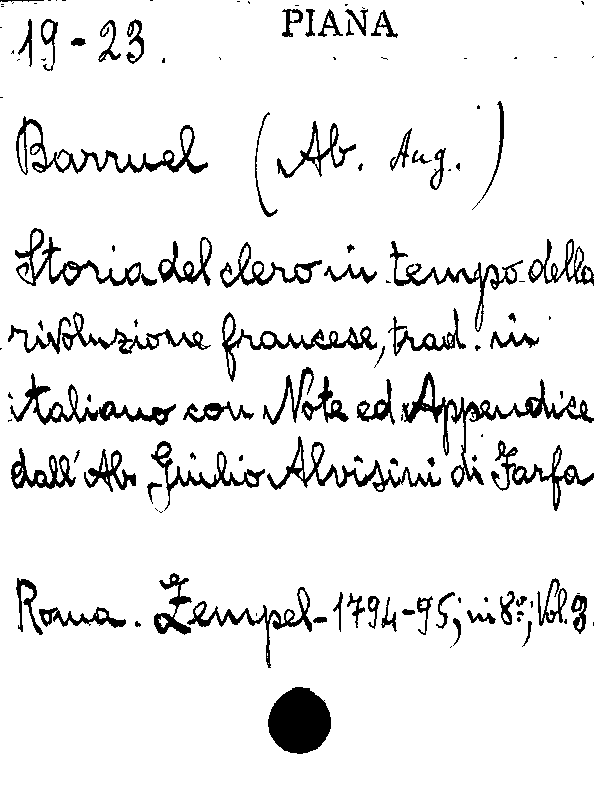 PIANA
19-23.
Barruel (Ab. Aug.)
Storia del clero in tempo della
rivoluzione francese, trad. in
italiano con Note ed Appendice
dall'Ab. Giulio Alvisini di Farfa
Roma. Zempel-1794-95; in 8º; Vol. 3.